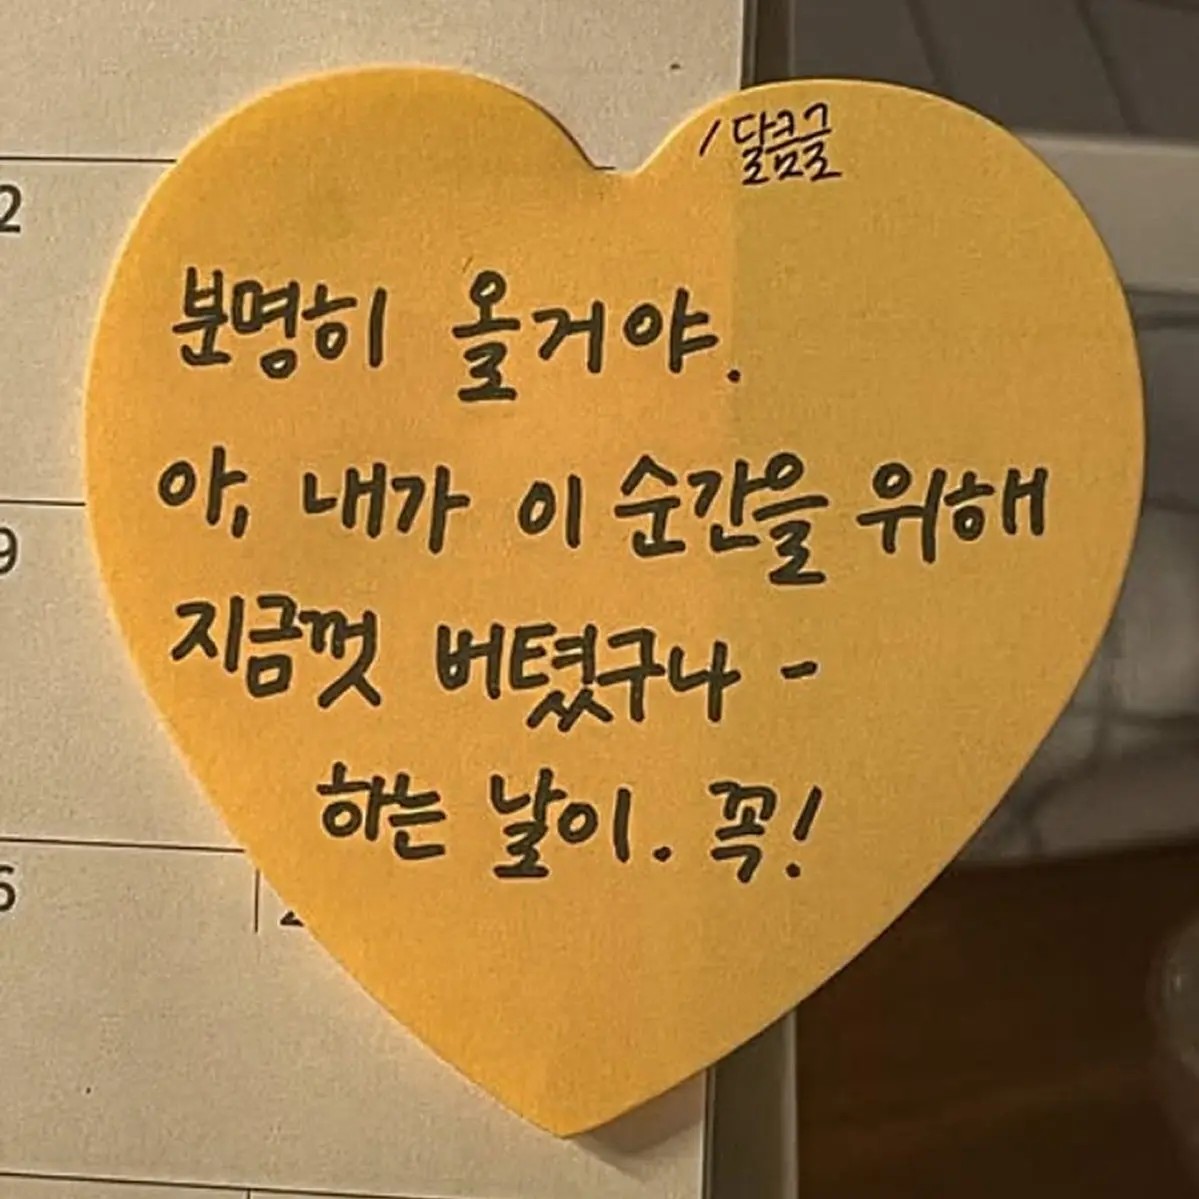 /달콤글
분명히 올거야.
아, 내가 이 순간을 위해
지금껏 버텼구나 -
하는 날이. 꼭!
2
9
6
2